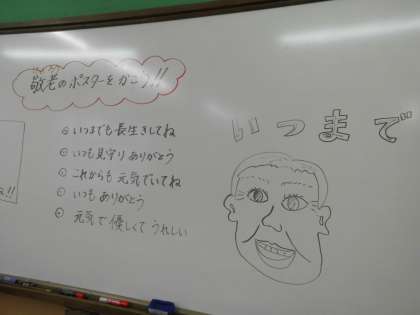 敬老のポスターをかこう!!
いつまでも長生きしてね
いつも見守りありがとう
これからも元気でいてね
いつもありがとう
元気で優しくてうれしい
いつまで
!!